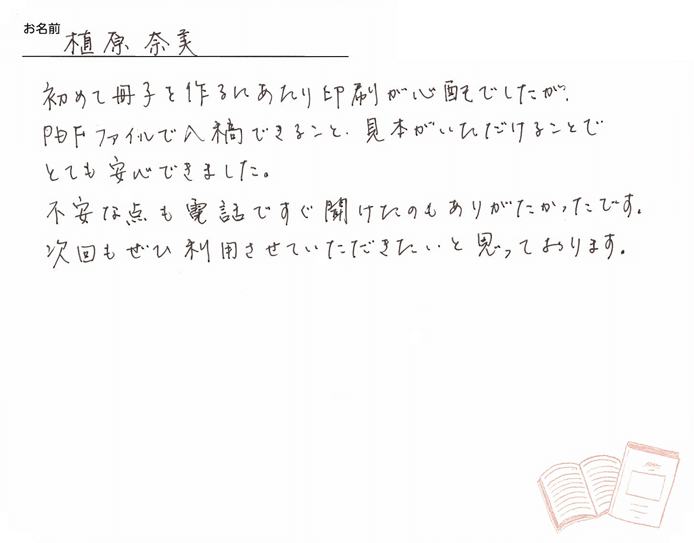 お名前 植原奈美
初めて冊子を作るにあたり印刷が心配でしたが、
PDFファイルで入稿できること、見本がいただけることで
とても安心できました。
不安な点も電話ですぐ聞けたのもありがたかったです。
次回もぜひ利用させていただきたいと思っております。